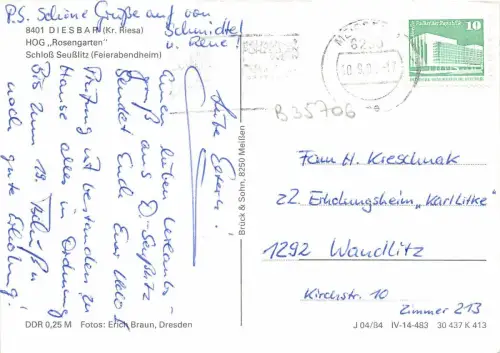 P.S. Schöne Grüße auf von
Schmidtel
u. Rene!
8401 DIESBAR (Kr. Riesa)
HOG „Rosengarten"
Schloß Seußlitz (Feierabendheim)
Liebe Eltern!
Einen lieben Urlaubs-
gruß aus D.-Seußlitz
sendet Euch Euer
Prüfung ist bestanden, zu
Hause alles in Ordnung
Bis zum 19.
noch gute Erholung!
DDR 0,25 M Fotos: Erich Braun, Dresden
Brück & Sohn, 8250 Meißen
8250
10
DDR
B35706
Fam H. Kieschnak
zZ. Erholungsheim „Karl Litke"
1292 Wandlitz
Kirchstr. 10
Zimmer 213
J 04/84 IV-14-483 30 437 K 413